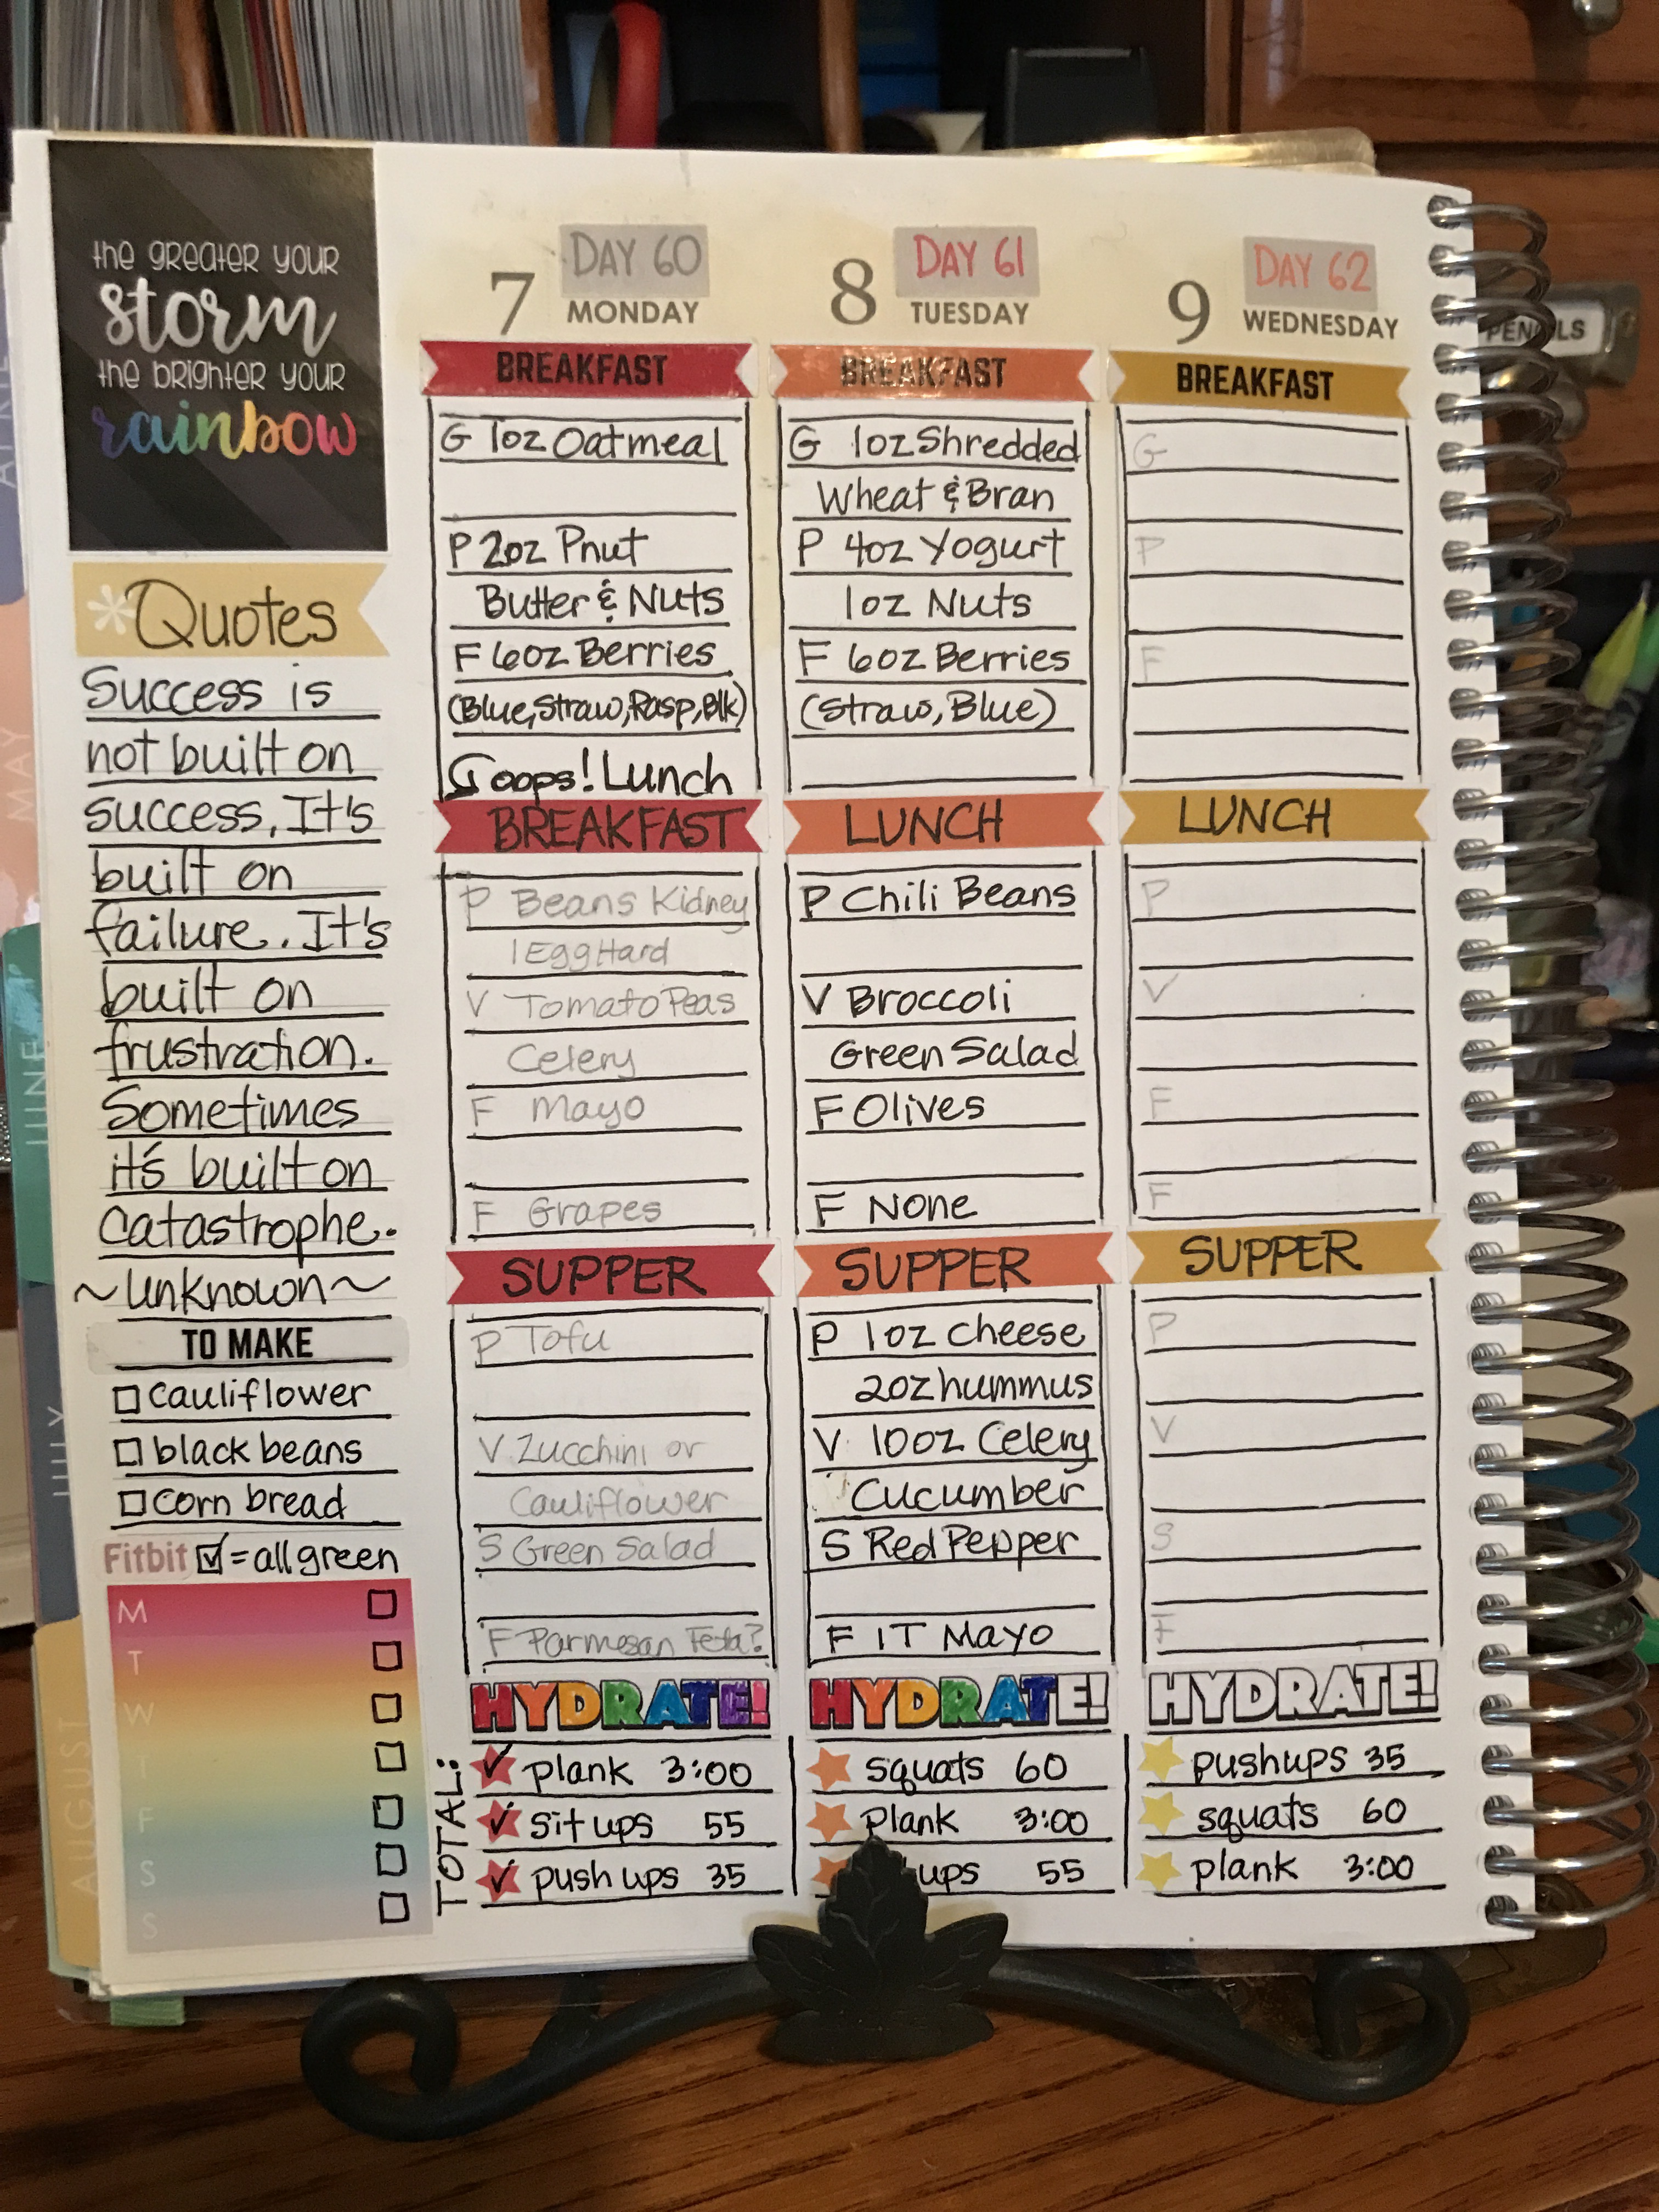 the greater your
storm
the brighter your
rainbow
*Quotes
Success is
not built on
success. It's
built on
failure. It's
built on
frustration.
Sometimes
it's built on
Catastrophe.
~Unknown~
TO MAKE
cauliflower
black beans
corn bread
Fitbit = all green
M
T
W
T
F
S
S
7 DAY 60
MONDAY
BREAKFAST
G 1oz Oatmeal
P 2oz Pnut
Butter & Nuts
F 6oz Berries
(Blue, Straw, Rasp, Blk)
oops! Lunch
BREAKFAST
P Beans Kidney
1 Egg Hard
V Tomato Peas
Celery
F Mayo
F Grapes
SUPPER
P Tofu
V Zucchini or
Cauliflower
S Green Salad
F Parmesan Feta?
HYDRATE!
TOTAL:
plank 3:00
sit ups 55
push ups 35
8 DAY 61
TUESDAY
BREAKFAST
G 1oz Shredded
Wheat & Bran
P 4oz Yogurt
1oz Nuts
F 6oz Berries
(Straw, Blue)
LUNCH
P Chili Beans
V Broccoli
Green Salad
F Olives
F None
SUPPER
P 1oz cheese
2oz hummus
V 10oz Celery
Cucumber
S Red Pepper
F 1T Mayo
HYDRATE!
squats 60
Plank 3:00
ups 55
9 DAY 62
WEDNESDAY
BREAKFAST
G
P
F
LUNCH
P
V
F
F
SUPPER
P
V
S
F
HYDRATE!
pushups 35
squats 60
plank 3:00
APRIL
MAY
JUNE
JULY
AUGUST
PENCILS